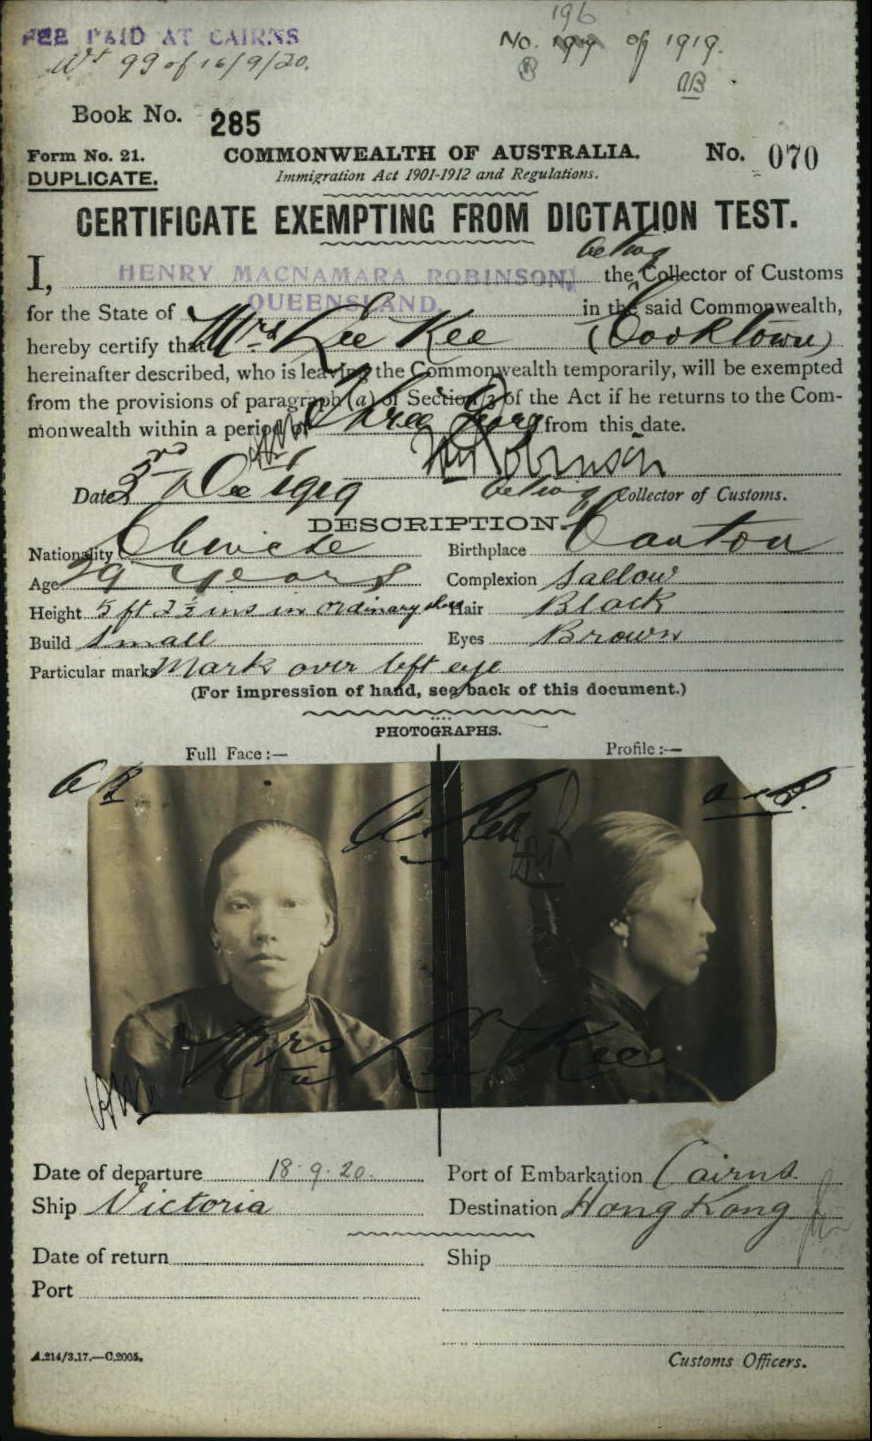 FEE PAID AT CAIRNS
196
No. 199 of 1919.
Wt 99 of 16/9/20.
Book No. 285
Form No. 21.
COMMONWEALTH OF AUSTRALIA.
No. 070
DUPLICATE.
Immigration Act 1901-1912 and Regulations.
CERTIFICATE EXEMPTING FROM DICTATION TEST.
Acting
I, HENRY MACNAMARA ROBINSON, the Collector of Customs
for the State of QUEENSLAND, in the said Commonwealth,
hereby certify that Mrs Lee Kee (Cooktown)
hereinafter described, who is leaving the Commonwealth temporarily, will be exempted
from the provisions of paragraph (a) of Section 3 of the Act if he returns to the Com-
monwealth within a period of Three years from this date.
HM Robinson
Date 3rd Dec 1919 Acting Collector of Customs.
DESCRIPTION.
Nationality Chinese Birthplace Canton
Age 29 years Complexion Sallow
Height 5 ft 2½ ins in ordinary shoes Hair Black
Build Small Eyes Brown
Particular marks Mark over left eye
(For impression of hand, see back of this document.)
PHOTOGRAPHS.
Full Face:— Profile:—
Mrs Lee Kee
Date of departure 18.9.20. Port of Embarkation Cairns
Ship Victoria Destination Hong Kong
Date of return Ship
Port
A.214/3.17.—C.2005. Customs Officers.